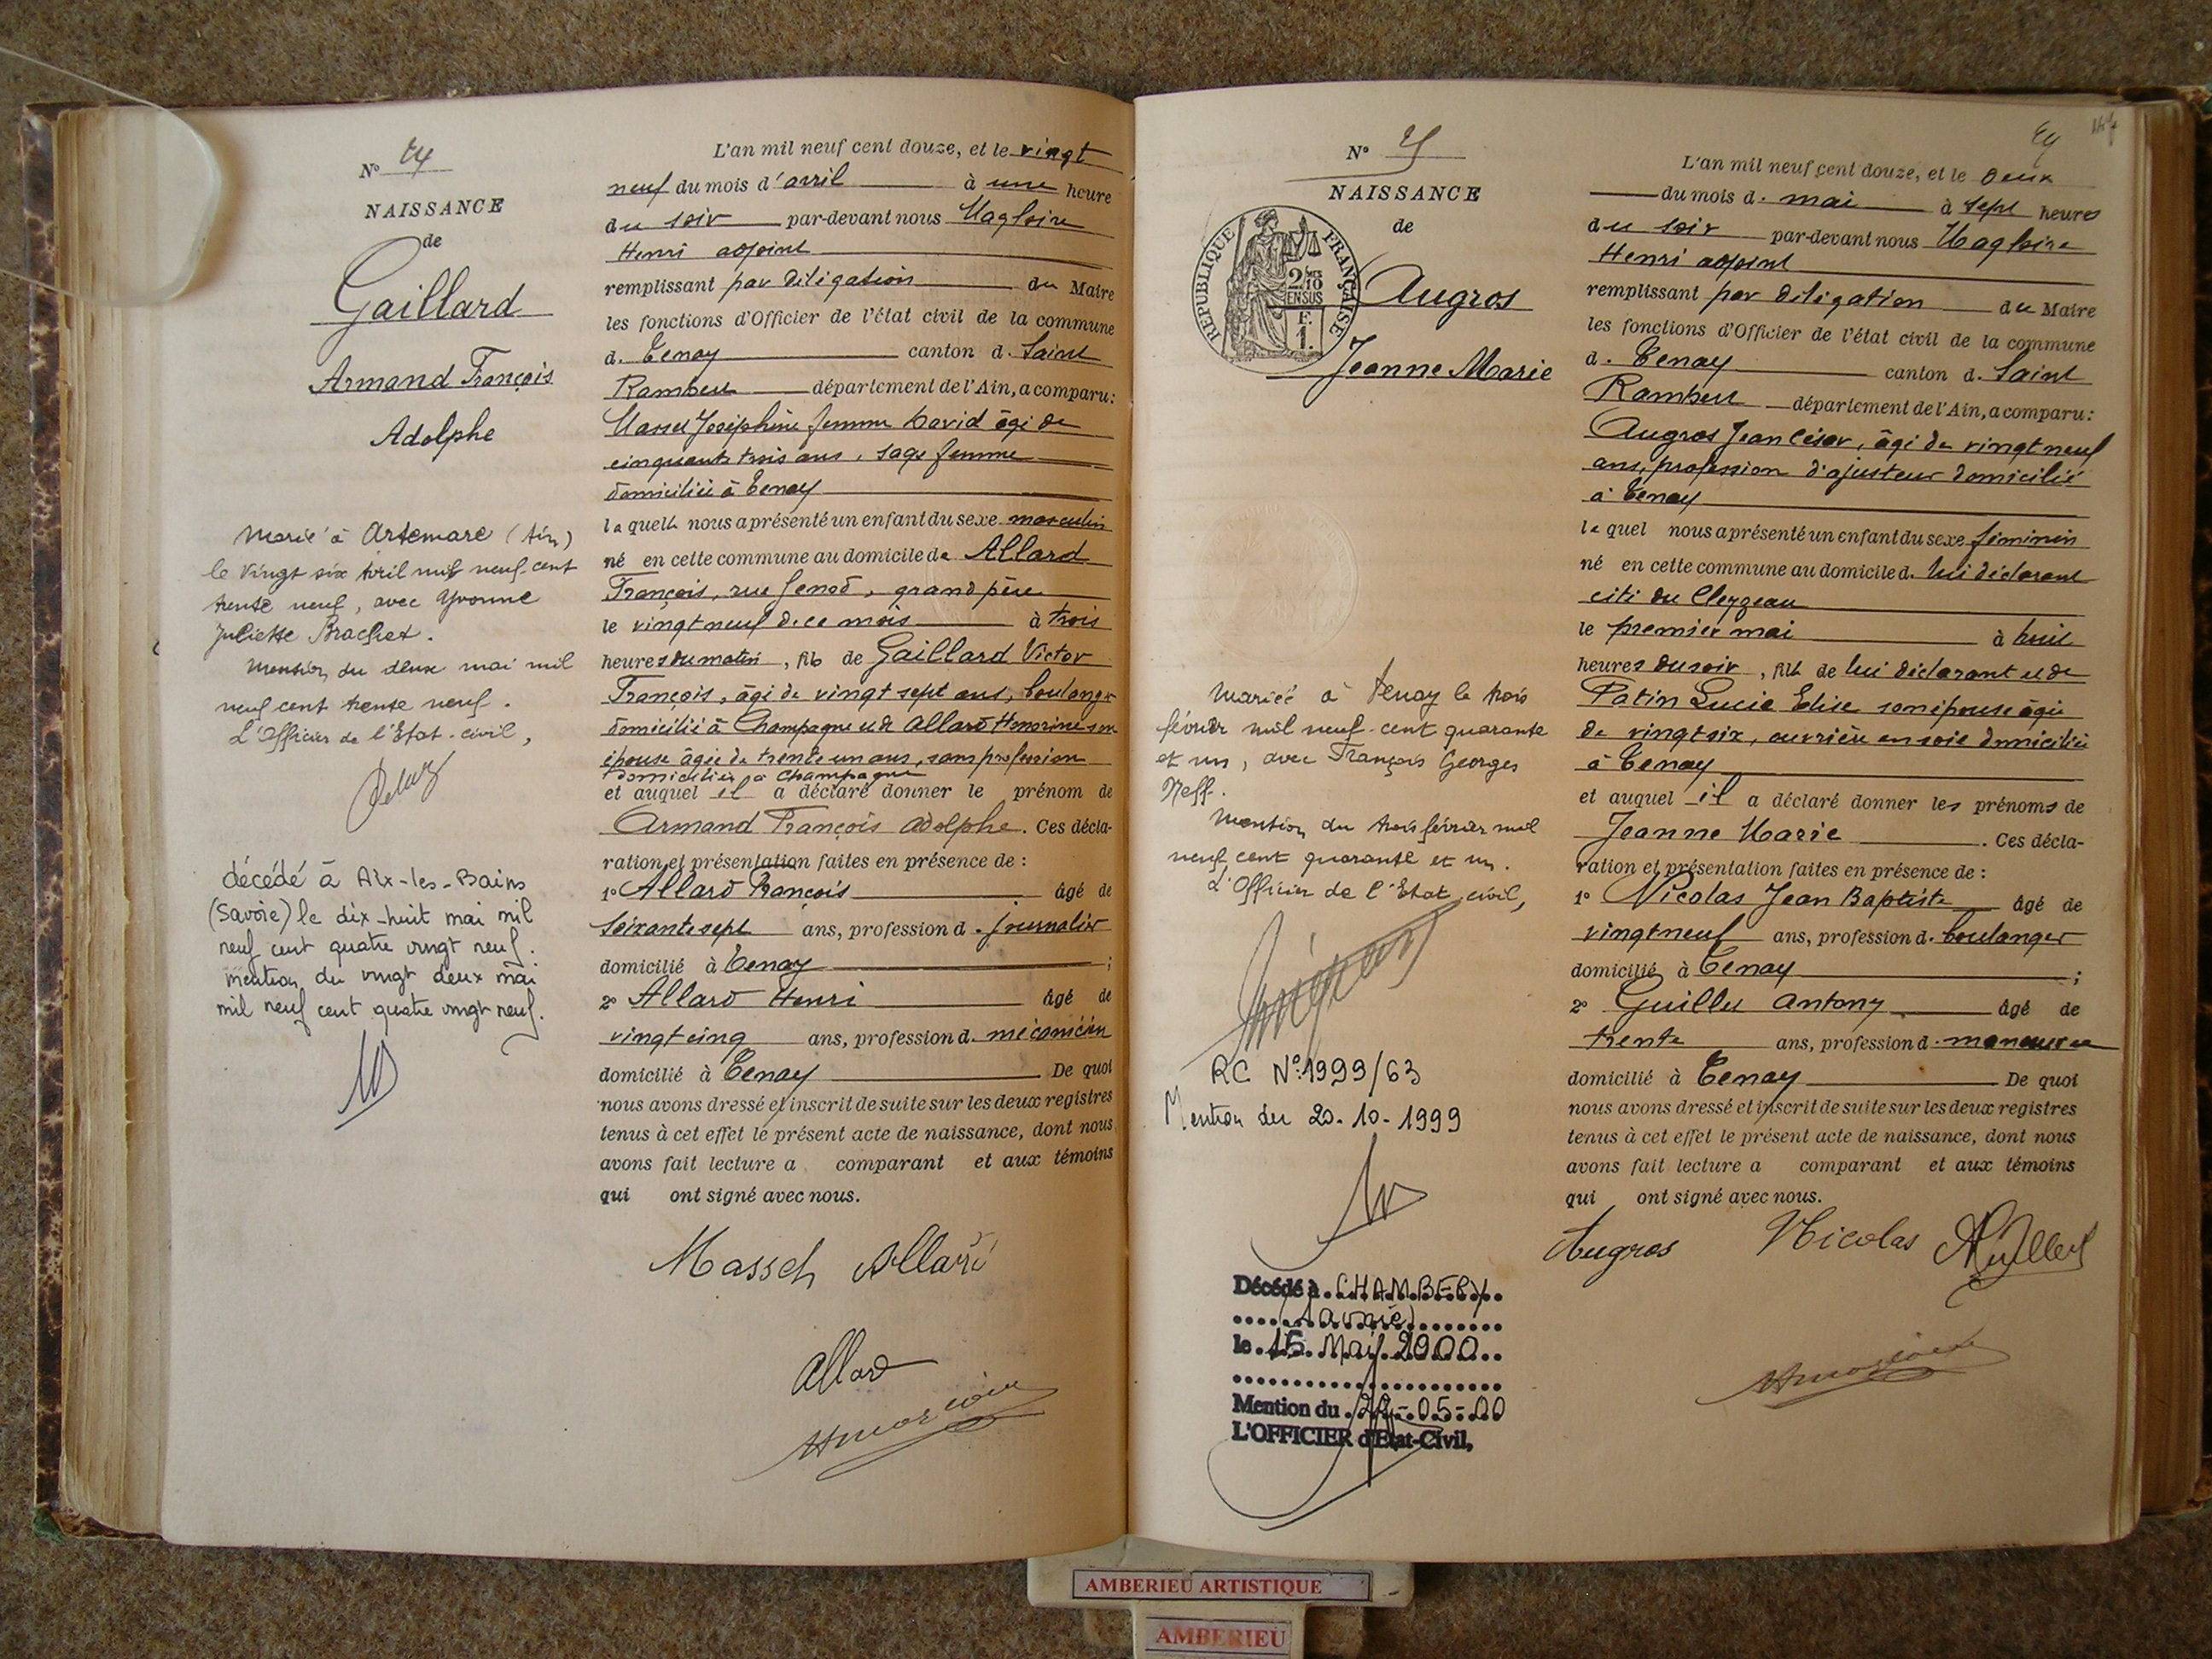 N° 24
NAISSANCE
de
Gaillard
Armand François
Adolphe
Marié à Artemare (Ain)
le vingt six avril mil neuf cent
trente neuf, avec Yvonne
Juliette Brachet.
Mention du deux mai mil
neuf cent trente neuf.
L'Officier de l'Etat-civil,
décédé à Aix-les-Bains
(Savoie) le dix-huit mai mil
neuf cent quatre vingt neuf.
mention du vingt deux mai
mil neuf cent quatre vingt neuf.
L'an mil neuf cent douze, et le vingt
neuf du mois d'avril à une heure
du soir par-devant nous Magloire
Henri adjoint
remplissant par déligation du Maire
les fonctions d'Officier de l'état civil de la commune
d. Tenay canton d. Saint
Rambert département de l'Ain, a comparu:
Josephine femme David âgé de
cinquante trois ans, sage femme
domiciliée à Tenay
laquelle nous a présenté un enfant du sexe masculin
né en cette commune au domicile de Allard
François, rue Genod, grand père
le vingt neuf de ce mois à trois
heures du matin, fils de Gaillard Victor
François, âgé de vingt sept ans, boulanger
domicilié à Champagne et de Allard Honorine son
épouse âgée de trente un ans, sans profession
domiciliée à Champagne
et auquel il a déclaré donner le prénom de
Armand François Adolphe. Ces décla-
ration et présentation faites en présence de :
1° Allard François âgé de
soixante sept ans, profession d. journalier
domicilié à Tenay ;
2° Allard Henri âgé de
vingt cinq ans, profession d. mécanicien
domicilié à Tenay De quoi
nous avons dressé et inscrit de suite sur les deux registres
tenus à cet effet le présent acte de naissance, dont nous
avons fait lecture a comparant et aux témoins
qui ont signé avec nous.
Allard
Allard
N° 25
NAISSANCE
de
REPUBLIQUE FRANÇAISE
2/10 EN SUS
F. 1.
Augros
Jeanne Marie
Mariée à Tenay le trois
février mil neuf-cent quarante
et un, avec François Georges
Neff.
Mention du trois février mil
neuf cent quarante et un.
L'Officier de l'Etat civil,
RC N°:1999/63
Mention du 20-10-1999
Décédé à CHAMBERY
(Savoie)
le 16 Mai 2000
Mention du 22-05-00
L'OFFICIER d'Etat-Civil,
L'an mil neuf cent douze, et le deux
du mois d. mai à sept heures
du soir par-devant nous Magloire
Henri adjoint
remplissant par déligation du Maire
les fonctions d'Officier de l'état civil de la commune
d. Tenay canton d. Saint
Rambert département de l'Ain, a comparu:
Augros Jean César, âgé de vingt neuf
ans, profession d'ajusteur domicilié
à Tenay
lequel nous a présenté un enfant du sexe féminin
né en cette commune au domicile d. lui déclarant
cité du Cleyzeau
le premier mai à huit
heures du soir, fille de lui déclarant et de
Patin Lucie Elise son épouse âgée
de vingt six, ouvrière en soie domiciliée
à Tenay
et auquel il a déclaré donner les prénoms de
Jeanne Marie. Ces décla-
ration et présentation faites en présence de :
1° Nicolas Jean Baptiste âgé de
vingt neuf ans, profession d. boulanger
domicilié à Tenay ;
2° Antony âgé de
trente ans, profession d.
domicilié à Tenay De quoi
nous avons dressé et inscrit de suite sur les deux registres
tenus à cet effet le présent acte de naissance, dont nous
avons fait lecture a comparant et aux témoins
qui ont signé avec nous.
Augros Nicolas
AMBERIEU ARTISTIQUE
AMBERIEU